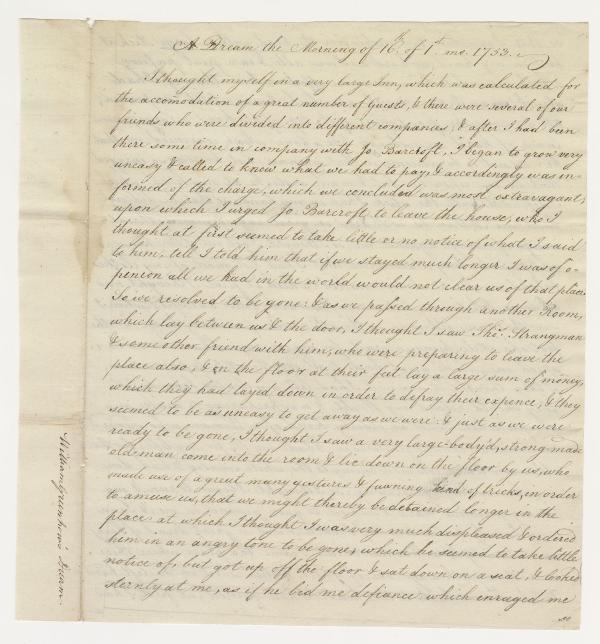 A Dream the Morning of 16th. of 1st. mo. 1753.
I thought myself in a very large Inn, which was calculated for
the accomodation of a great number of Guests, & there were several of our
friends who were divided into different companies; & after I had been
there some time in company with Jo. Barcroft, I began to grow very
uneasy & called to know what we had to pay, & accordingly was in-
formed of the charge, which we concluded was most extravagant,
upon which I urged Jo. Barcroft to leave the house, who I
thought at first seemed to take little or no notice of what I said
to him, till I told him that if we stayed much longer I was of o-
penion all we had in the world would not clear us of that place.
So we resolved to be gone: & as we passed through another Room,
which lay between us & the door, I thought I saw Thos. Strangman
& some other friend with him, who were preparing to leave the
place also, & on the floor at their feet lay a large sum of money,
which they had layed down in order to defray their expence, & they
seemed to be as uneasy to get away as we were: & just as we were
ready to be gone, I thought I saw a very large-body'd, strong-made
old-man come into the room & lie down on the floor by us, who
made use of a great many gestures & fawning kind of tricks, in order
to amuse us, that we might thereby be detained longer in the
place: at which I thought I was very much displeased & ordered
him in an angry tone to be gone, which he seemed to take little
notice of, but got up off the floor & sat down on a seat, & looked
sternly at me, as if he bid me defiance: which enraged me
so
William Greenhow's Dream.